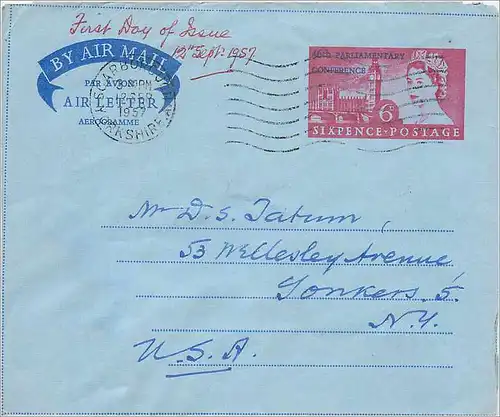 First Day of Issue
12th Sept. 1957
BY AIR MAIL
PAR AVION
AIR LETTER
AEROGRAMME
SCARBOROUGH
PM
12 SEP
1957
YORKSHIRE
46TH PARLIAMENTARY
CONFERENCE
6D
SIXPENCE·POSTAGE
Mr D. S. Tatum,
53 Wellesley Avenue
Yonkers. 5.
N.Y.
U.S.A.